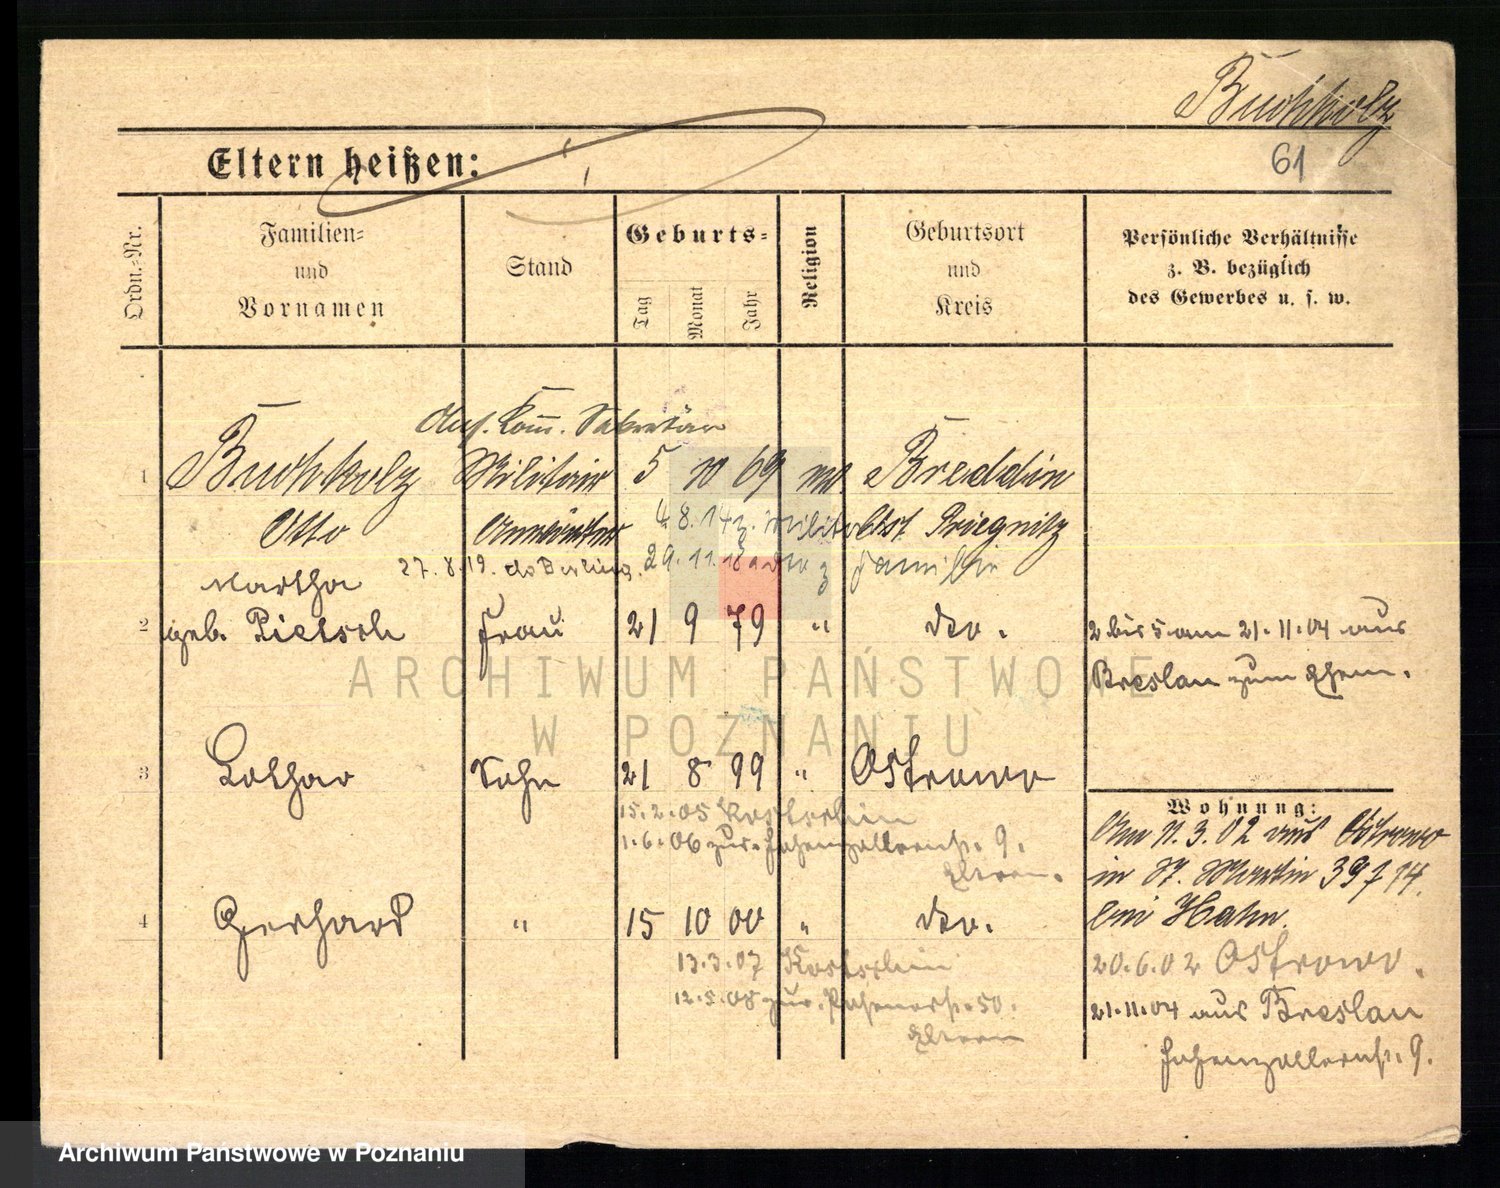 Buchholz
61
Eltern heißen:
Ordn.-Nr.
Familien-
und
Vornamen
Stand
Geburts-
Tag
Monat
Jahr
Religion
Geburtsort
und
Kreis
Persönliche Verhältnisse
z. B. bezüglich
des Gewerbes u. s. w.
Sekretär
1 Buchholz Militair 5 10 69 Breddin
Otto Anwärter 4.8.14 z. Militär Ost Priegnitz
27.8.19. 29.11.18 Familie
Martha
2 geb. Pietsch Frau 21 9 79 " dto. 2 bis 5 am 21.11.04 aus
Breslau zum Ehem.
3 Lothar Sohn 21 8 99 " Ostrowo
15.2.05 Kostschin
1.6.06 zur. Hohenzollernstr. 9.
Eltern.
Wohnung:
Am 11.3.02 aus Ostrowo
in St. Martin 39
bei Hahn.
4 Gerhard " 15 10 00 " dto.
13.3.07 Kostschin
12.5.08 zur. 50.
Eltern
20.6.02 Ostrowo.
21.11.04 aus Breslau
Hohenzollernstr. 9.
ARCHIWUM PAŃSTWOWE
W POZNANIU
Archiwum Państwowe w Poznaniu